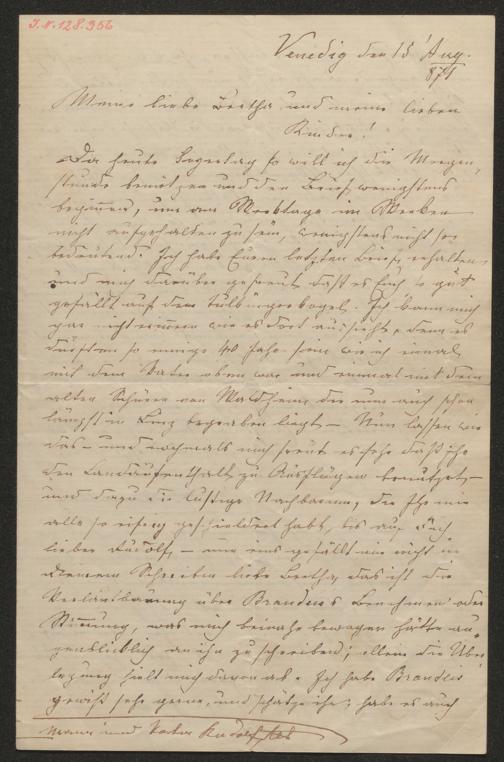 J.N. 128.956
Venedig den 15 Aug.
871
Meine liebe Bertha und meine lieben
Kinder!
Da heute so will ich die Morgen-
stunde benützen und den Brief wenigstens
beginnen, um am Werktage im
nicht aufgehalten zu sein, wenigstens nicht so
bedeutend. Ich habe Euern letzten Brief erhalten
und mich darüber gefreut daß es Euch so gut
gefällt auf dem Tulbingerkogel. Ich kann mich
gar nicht erinnern wie es dort aussieht, denn es
dürften so einige 40 Jahre sein wie ich einmal
mit dem Vater oben war und einmal mit dem
alten von Waldheim der nun auch schon
längst in Linz begraben liegt – Nun lassen wir
das – und nochmals mich freut es sehr daß Ihr
den Landaufenthalt zu Ausflügen benützt –
und dazu die lustige Nachbarin, die Ihr mir
alle so eifrig geschildert habt, bis auf Dich
lieber Rudolf, – nur eins gefällt mir nicht in
Deinem Schreiben liebe Bertha, das ist die
Verlautbarung über Brandeis Benehmen oder
Stimmung, was mich beinahe bewogen hätte au-
genblicklich an ihn zu schreiben; allein die Über-
legung hielt mich davon ab. Ich habe Brandeis
gewiß sehr gerne, und schätze ihn; habe es auch
Mann und Vater Rudolf Alt